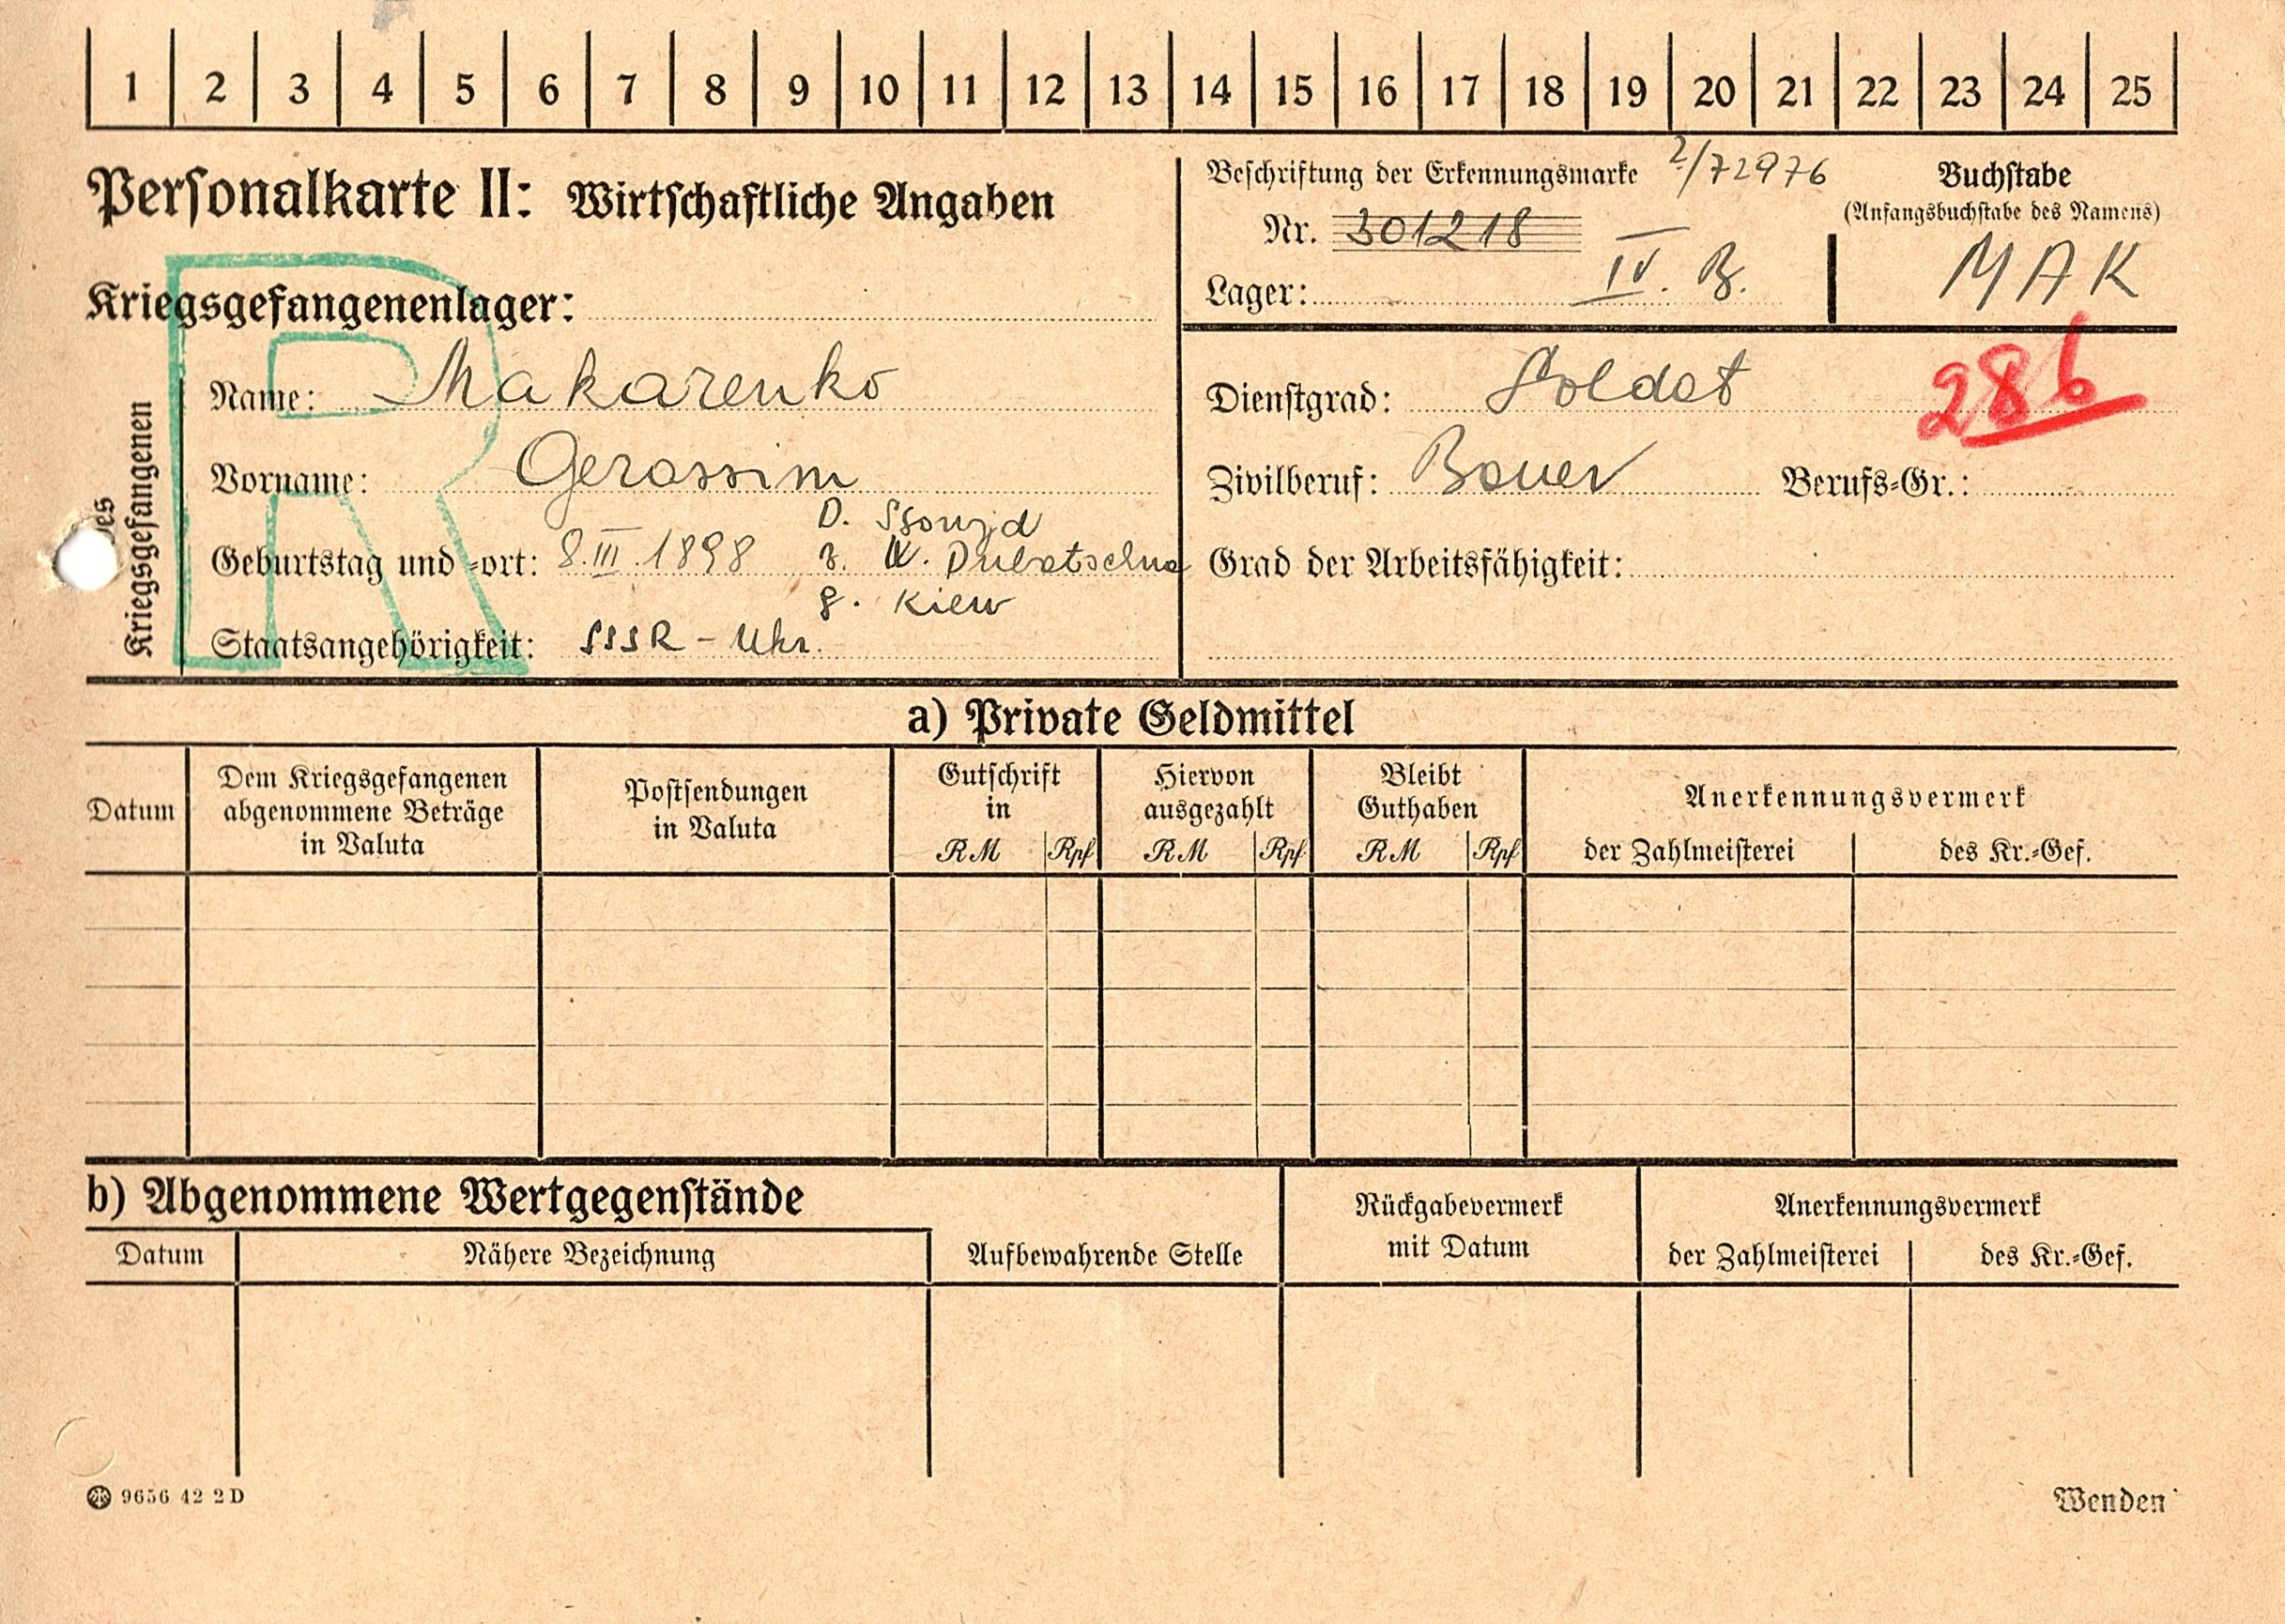 1 2 3 4 5 6 7 8 9 10 11 12 13 14 15 16 17 18 19 20 21 22 23 24 25
Personalkarte II: Wirtschaftliche Angaben
Kriegsgefangenenlager:
des Kriegsgefangenen
R
Name: Makarenko
Vorname: Gerassim
D.
Geburtstag und -ort: 8.III.1898 r. W. Dubetschna
g. Kiew
Staatsangehörigkeit: SSSR - Ukr.
Beschriftung der Erkennungsmarke 2/72976
Nr. 301218
Lager: IV. B.
Buchstabe
(Anfangsbuchstabe des Namens)
MAK
Dienstgrad: Soldat
286
Zivilberuf: Bauer Berufs-Gr.:
Grad der Arbeitsfähigkeit:
a) Private Geldmittel
Datum
Dem Kriegsgefangenen
abgenommene Beträge
in Valuta
Postsendungen
in Valuta
Gutschrift
in
RM Rpf
Hiervon
ausgezahlt
RM Rpf
Bleibt
Guthaben
RM Rpf
Anerkennungsvermerk
der Zahlmeisterei des Kr.-Gef.
b) Abgenommene Wertgegenstände
Datum Nähere Bezeichnung Aufbewahrende Stelle
Rückgabevermerk
mit Datum
Anerkennungsvermerk
der Zahlmeisterei des Kr.-Gef.
9656 42 2D
Wenden